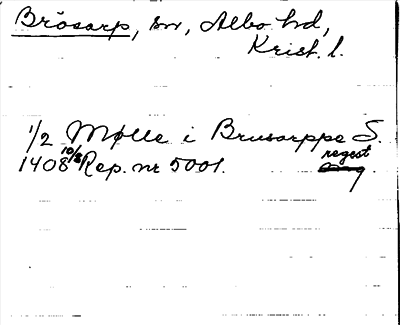 Brösarp, sn, Albo hd,
Krist. l.
1/2 Mølle i Brusarppe S.
1408 10/8 Rep. nr 5001. regest